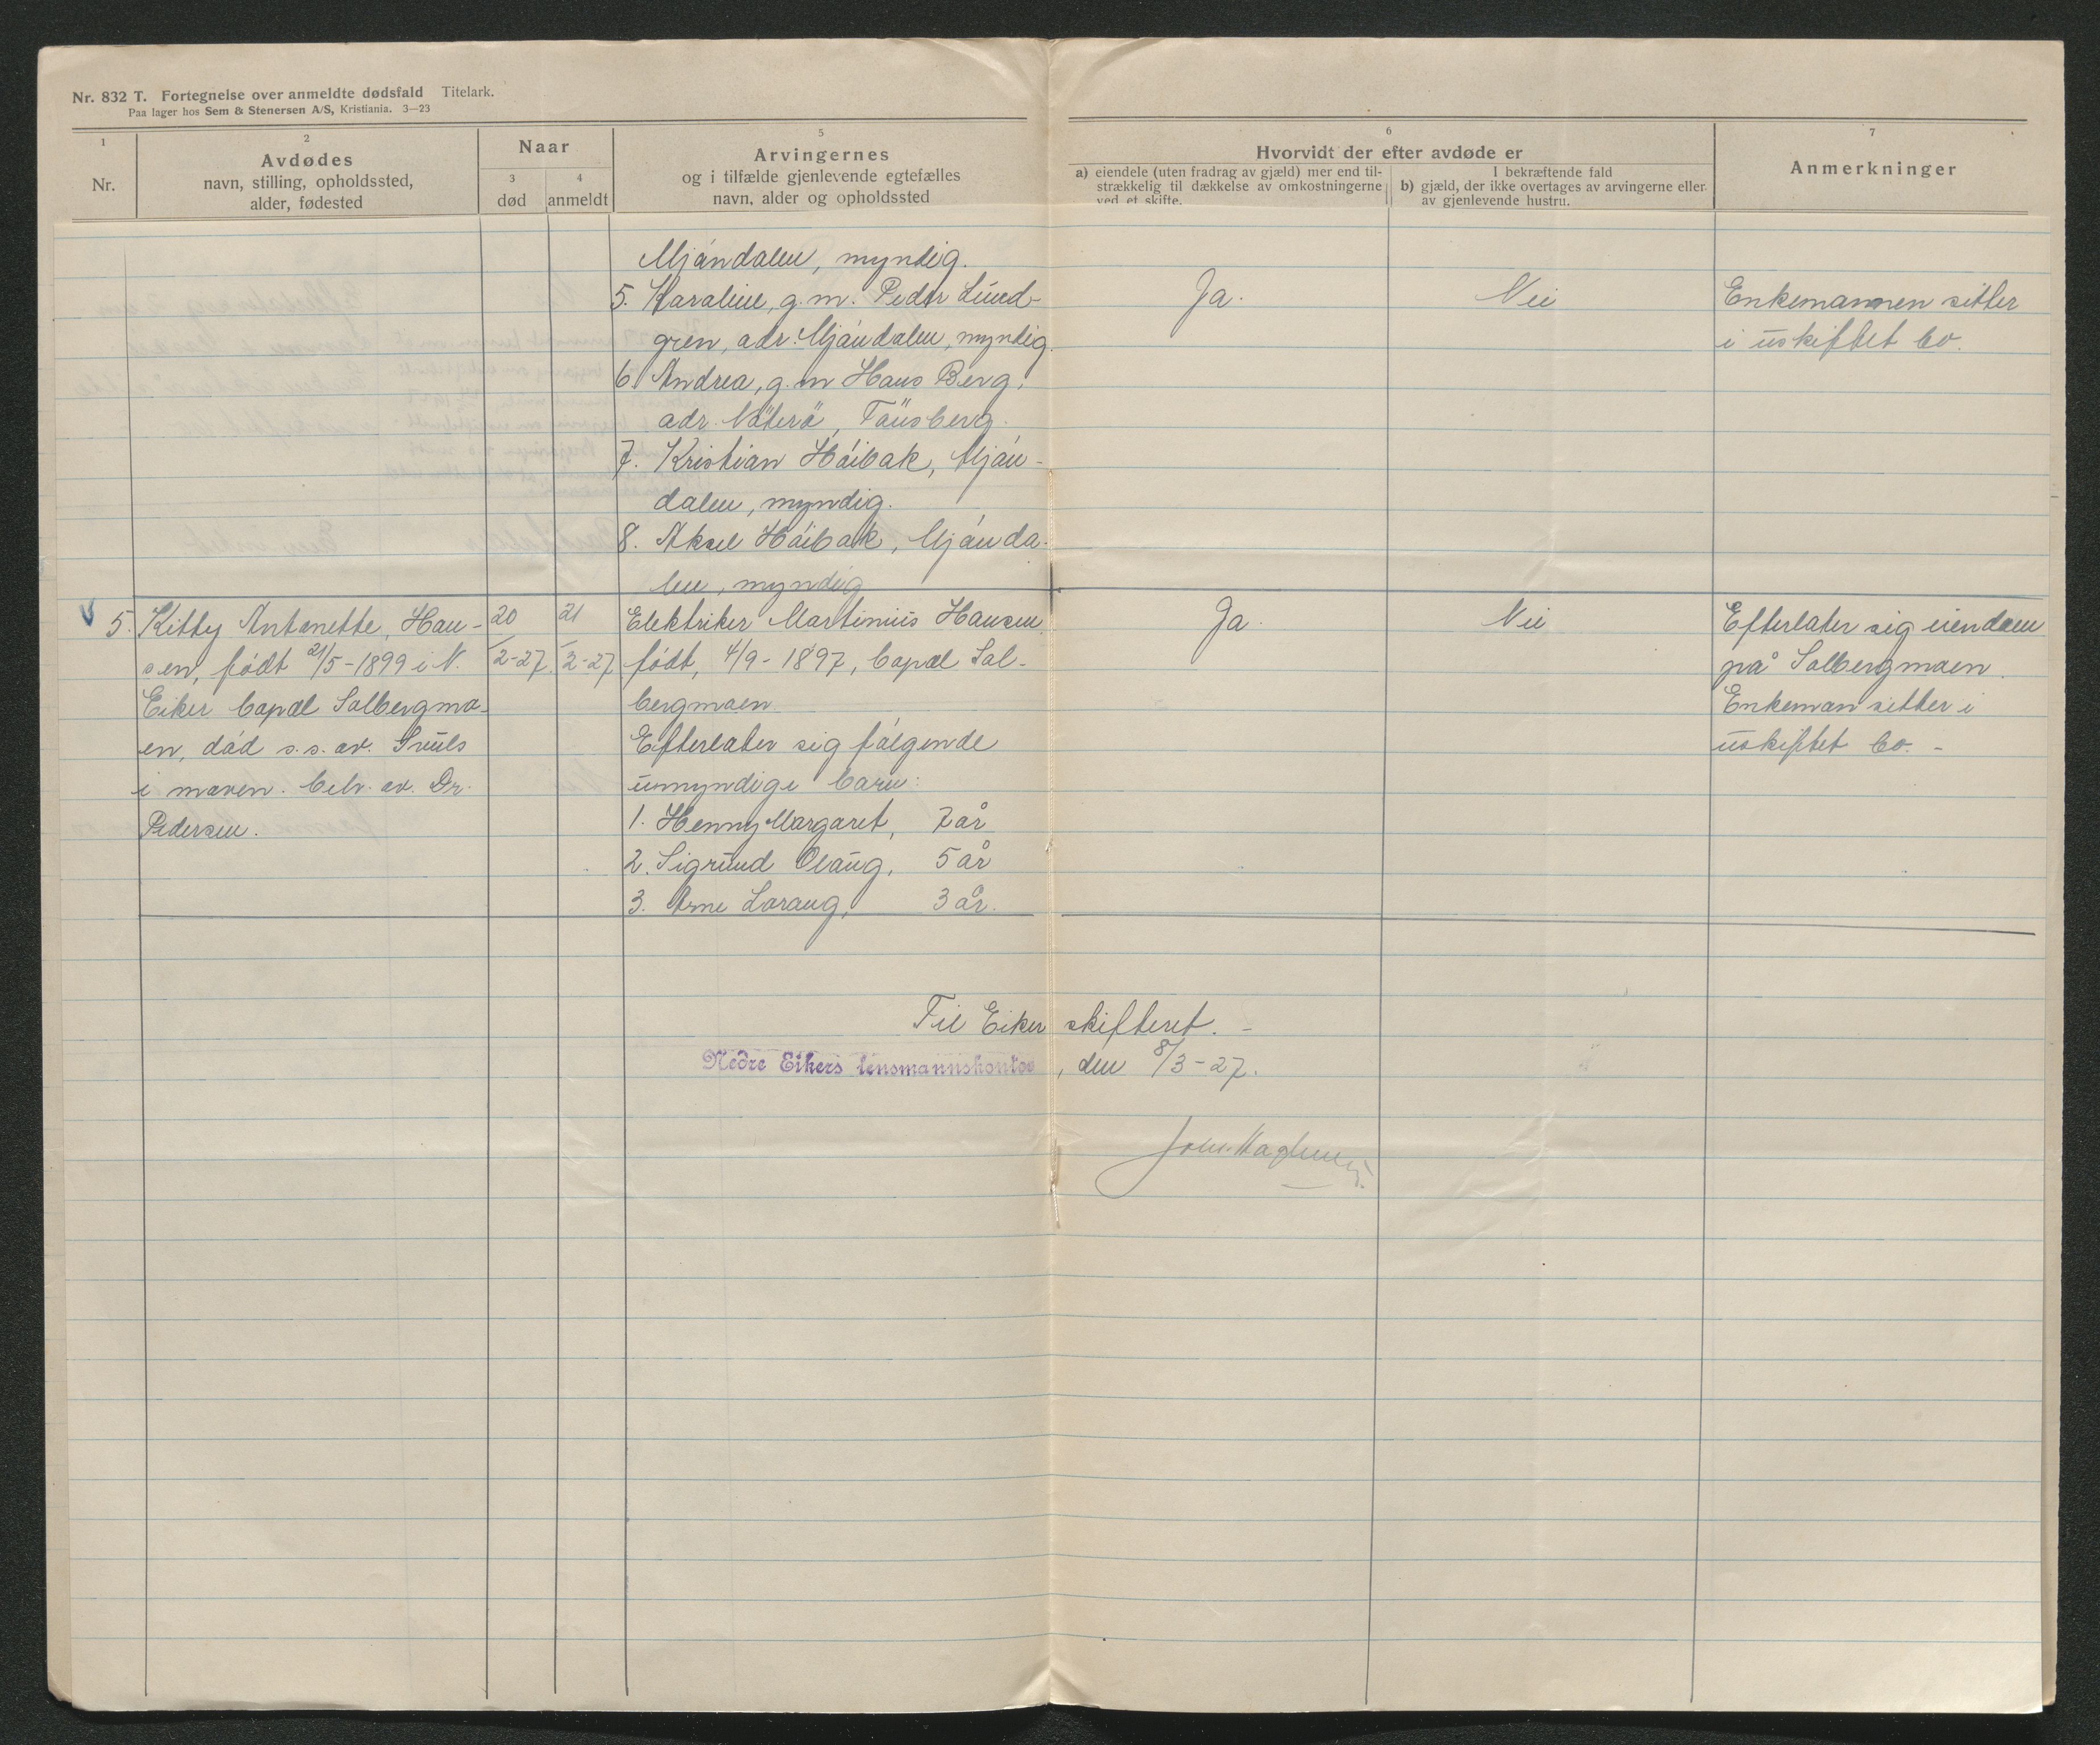 Nr. 832 T. Fortegnelse over anmeldte dødsfald Titelark.
Paa lager hos Sem & Stenersen A/S, Kristiania. 3—23
1
Nr.
2
Avdødes
navn, stilling, opholdssted,
alder, fødested
Naar
3
død
4
anmeldt
5
Arvingernes
og i tilfælde gjenlevende egtefælles
navn, alder og opholdssted
6
Hvorvidt der efter avdøde er
a) eiendele (uten fradrag av gjæld) mer end til-
strækkelig til dækkelse av omkostningerne
ved et skifte.
I bekræftende fald
b) gjæld, der ikke overtages av arvingerne eller
av gjenlevende hustru.
7
Anmerkninger
Mjøndalen, myndig.
5. Karoline, g.m. Peder Lund-
gren, adr. Mjøndalen, myndig.
6. Andrea, g.m Hans Berg,
adr. Nøterø, Tønsberg.
7. Kristian Høibak, Mjøn-
dalen, myndig.
8. Aksel Høibak, Mjønda-
len, myndig
Ja.
Nei
Enkemannen sitter
i uskiftet bo.
5. Kitty Antonette, Han-
sen, født 21/5-1899 i N.
Eiker bopæl Solbergmo-
en, død s.s. av. Svuls
i maven. beh. av. Dr.
Pedersen.
20
2-27.
21
2-27
Elektriker Martinius Hansen
født, 4/9-1897, bopæl Sol-
bergmoen
Efterlater sig følgende
umyndige barn:
1. Henny Margaret, 7 år
2. Sigrund Olaug, 5 år
3. Arne Loraug, 3 år.
Ja.
Nei
Efterlater sig eiendom
på Solbergmoen.
Enkeman sitter i
uskiftet bo. -
Til Eiker skifteret. -
Nedre Eikers lensmannskontor, den 8/3-27.